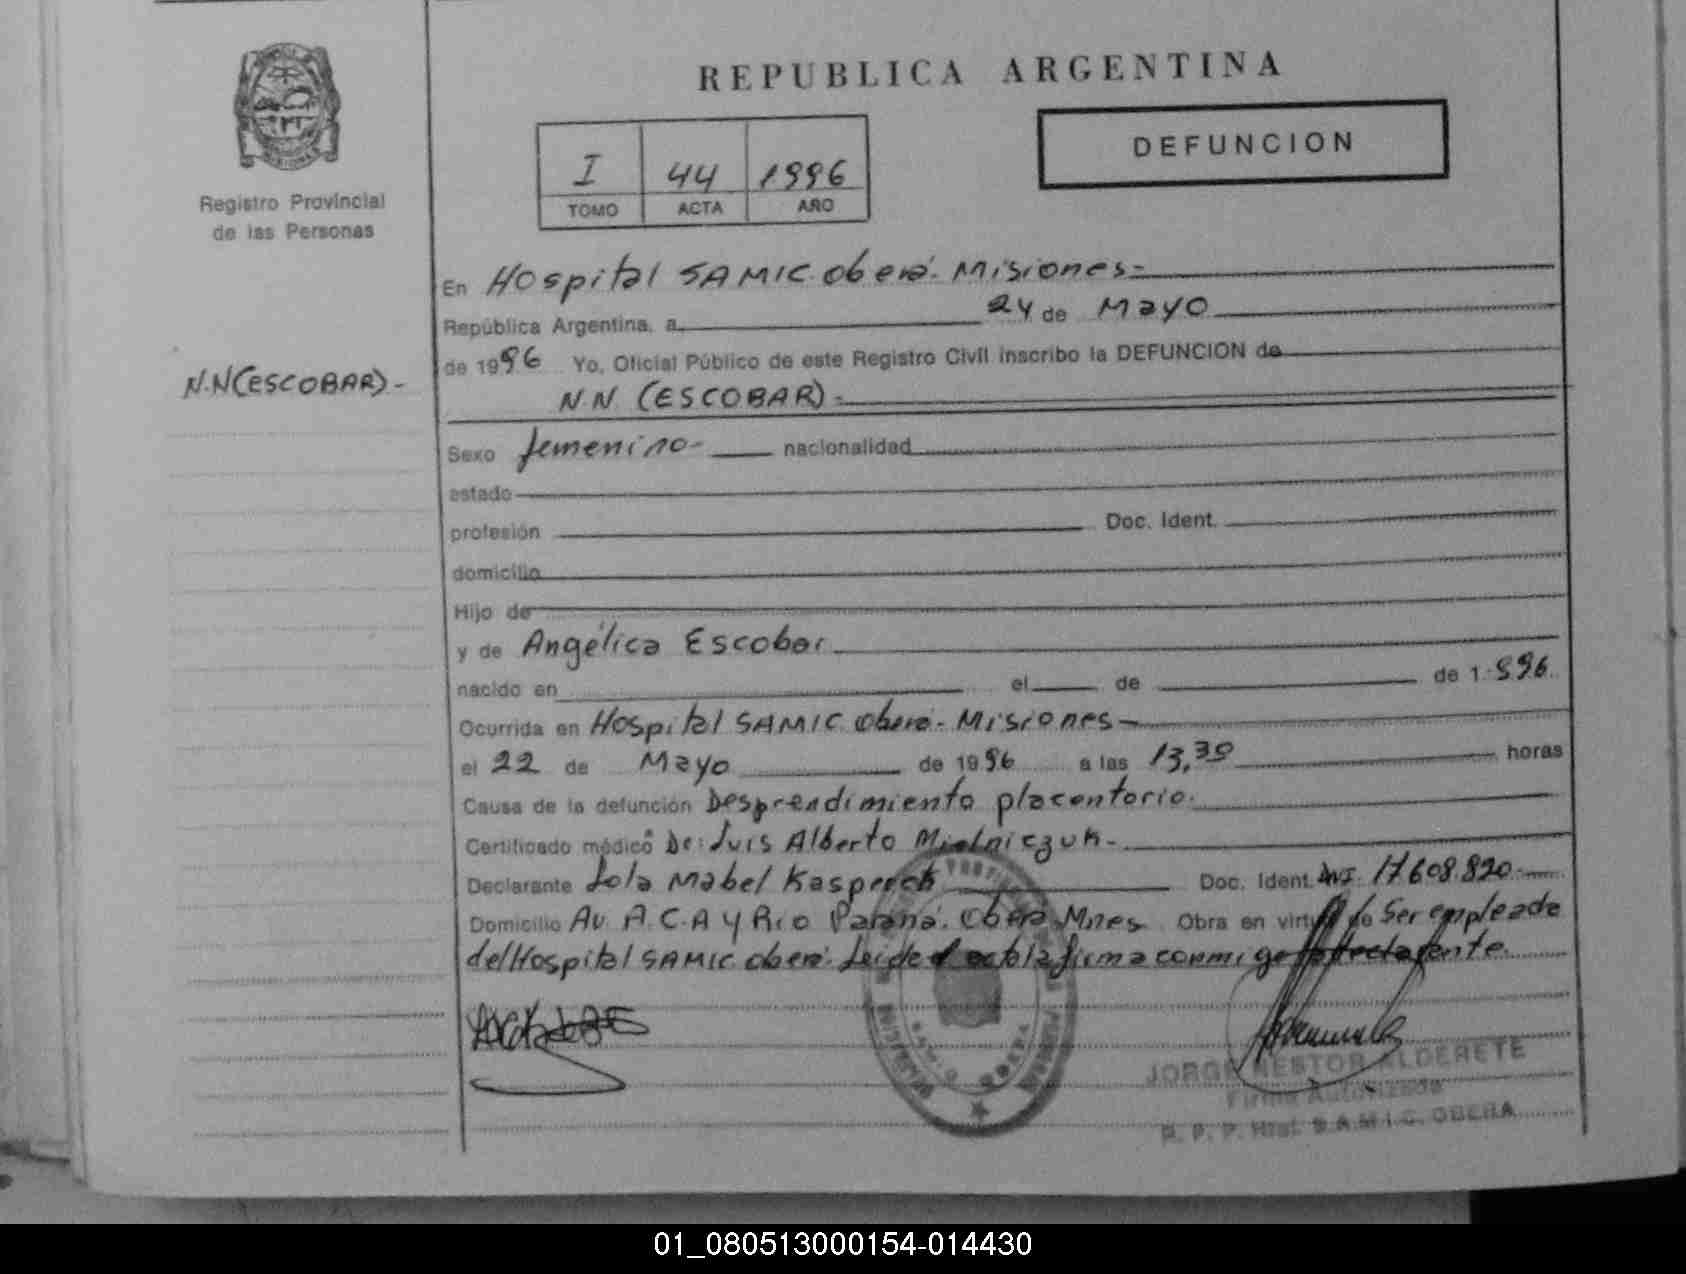 REPUBLICA ARGENTINA
DEFUNCION
I 44 1996
TOMO ACTA AÑO
Registro Provincial
de las Personas
N.N(ESCOBAR)-
En Hospital SAMIC. Oberá. Misiones-
República Argentina, a 24 de Mayo
de 1996 Yo, Oficial Público de este Registro Civil inscribo la DEFUNCION de
N.N. (ESCOBAR)-
Sexo femenino- nacionalidad
estado
profesión Doc. Ident.
domicilio
Hijo de
y de Angélica Escobar
nacido en el de de 1.996
Ocurrida en Hospital SAMIC. Oberá- Misiones-
el 22 de Mayo de 1996 a las 13,30 horas
Causa de la defunción Desprendimiento placentorio.
Certificado médico Dr: Luis Alberto Mielniczuk-
Declarante Lola Mabel Kasperek Doc. Ident. DNI. 17.608.820
Domicilio Av. A.C.A y Rio Paraná. Oberá Mnes. Obra en virtud de Ser empleade
del Hospital SAMIC. Oberá. Leida el acta la firma conmigo
JORGE NESTOR ALDERETE
Firma Autorizada
R. P. P. Hzal. S.A.M.I.C. OBERA
01_080513000154-014430